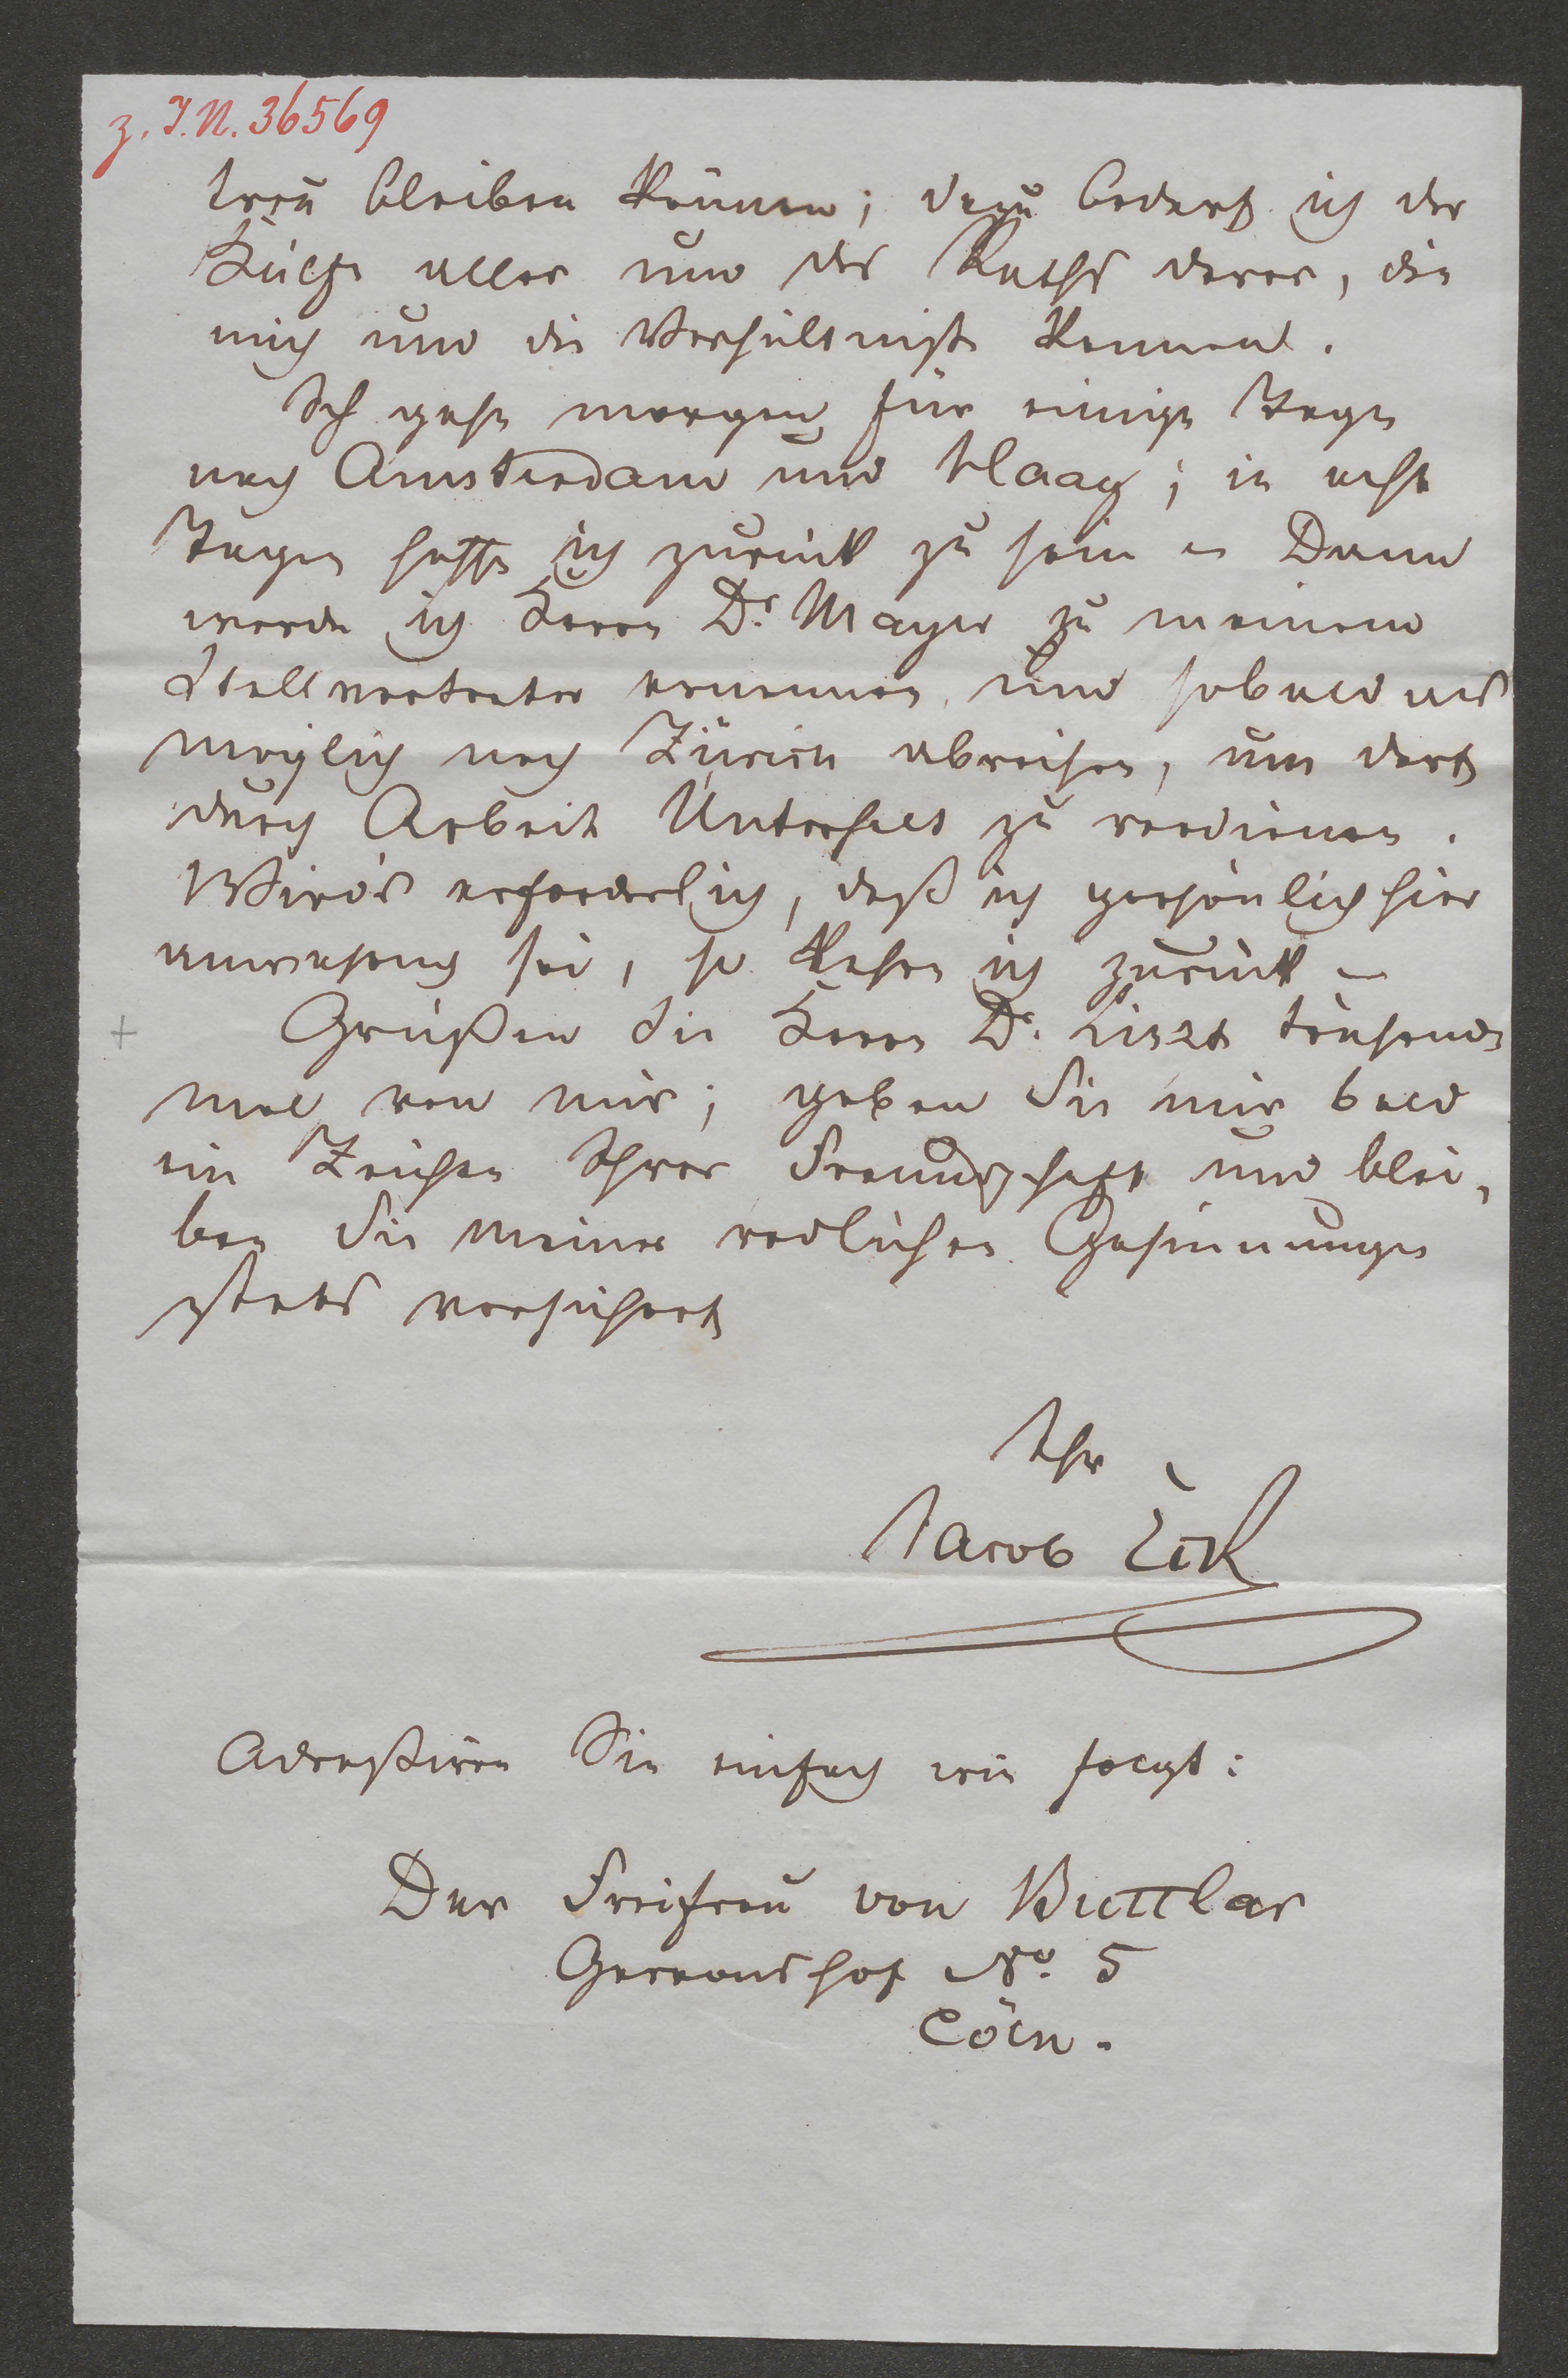 z. I.N. 36569
treu bleiben können; dazu bedarf ich der
Hülfe aller und des Raths derer, die
mich und die Verhältniße kennen.
Ich gehe morgen für einige Tage
nach Amsterdam und Haag; in acht
Tagen hoffe ich zurück zu sein – Dann
werde ich Herrn Dr. Mayer zu meinem
Stellvertreter ernennen, und sobald als
möglich nach Zürich abreisen, um dort
durch Arbeit Unterhalt zu verdienen.
Wird's erforderlich, daß ich persönlich hier
anwesend sei, so kehre ich zurück –
+ Grüßen Sie Herrn Dr. Liszt tausend
mal von mir; geben Sie mir bald
ein Zeichen Ihrer Freundschaft und blei-
ben Sie meiner redlichen Gesinnungen
stets versichert
Ihr
Jacob Eck
Adreßiren Sie einfach wie folgt:
Der Freifrau von Buttlar
Gereonshof No. 5
Cöln.